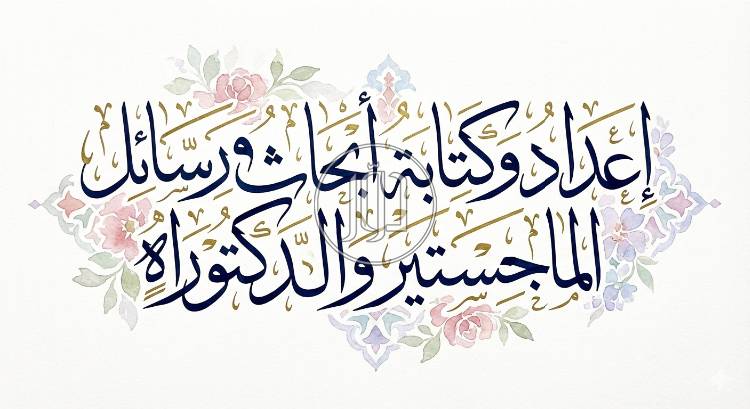 إِعْدَادُ وَكِتَابَةُ أَبْحَاثِ وَرَسَائِل
الْمَاجِسْتِيرِ وَالدُّكْتُورَاه